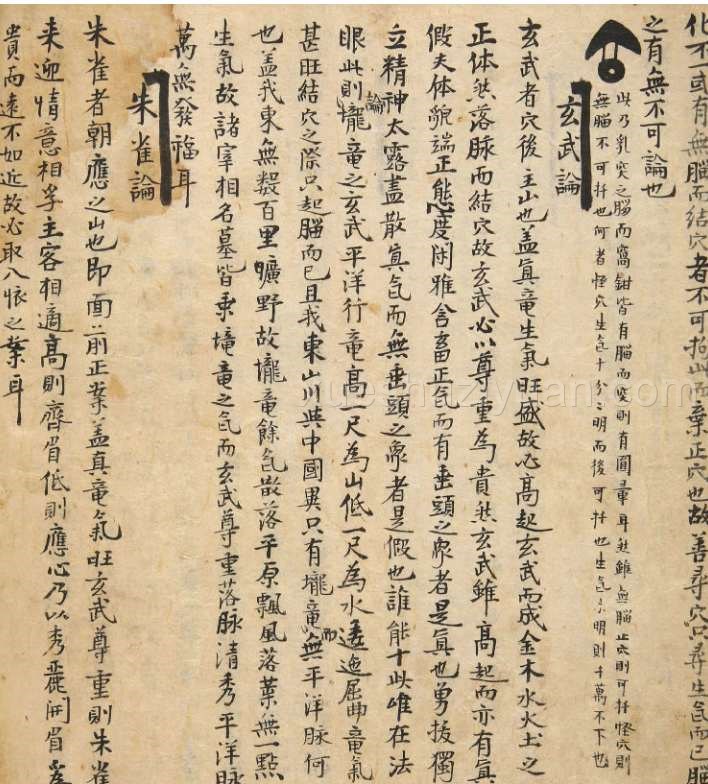 化不一或有無腦而結穴者不可拘此而棄正穴也故善尋穴只尋生气而已腦
之有無不可論也
此乃乳突之腦而窩鉗皆有腦而突則有圓暈耳然雖無腦此穴則可扦怪穴則
無腦不可扦也何者怪穴生气十分明而後可扦也生气不明則千萬不下也
玄武論
玄武者穴後主山也盖眞竜生气旺盛故必高起玄武而成金木水火土之
正体然落脉而結穴故玄武必以尊重為貴然玄武雖高起而亦有眞
假夫体貌端正態度闲雅含畜正气而有垂頭之象者是眞也勇拔獨
立精神太露盖散眞气而無垂頭之象者是假也誰能十此唯在法
眼此則論壠竜之玄武平洋行竜高一尺為山低一尺為水逶迤屈曲竜氣
甚旺結穴之際只起腦而已且我東山川與中國異只有壠竜而無平洋脉何
也盖我東無数百里曠野故壠竜餘气散落平原飄風落葉無一點
生氣故諸宰相名墓皆乘壠竜之气而玄武尊重落脉清秀平洋脉
萬無發福耳
朱雀論
朱雀者朝應之山也即面前正案盖真竜氣旺玄武尊重則朱雀
来迎情意相孚主客相適高則齊眉低則應心乃以秀麗開眉爲
貴而遠不如近故必取入懐之案耳